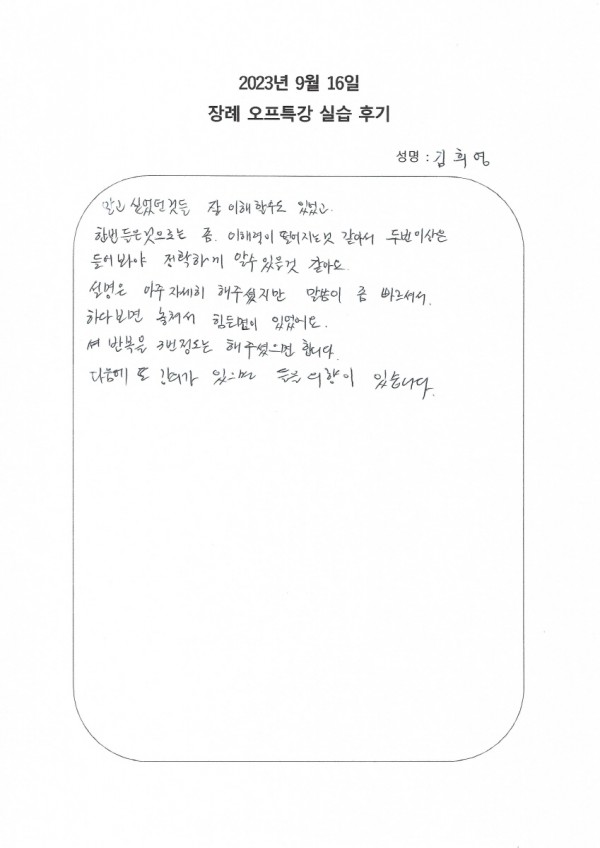 2023년 9월 16일
장례 오프특강 실습 후기
성명 : 김희영
알고 싶었던것들 잘 이해할수도 있었고.
한번 들은것으로는 좀. 이해력이 떨어지는것 같아서 두번이상은
들어봐야 정확하게 알수 있을것 같아요.
설명은 아주 자세히 해주셨지만 말씀이 좀 빠르셔서.
하다보면 놓쳐서 힘든면이 있었어요.
반복을 3번정도는 해주셨으면 합니다.
다음에 또 있으면 들을 의향이 있습니다.